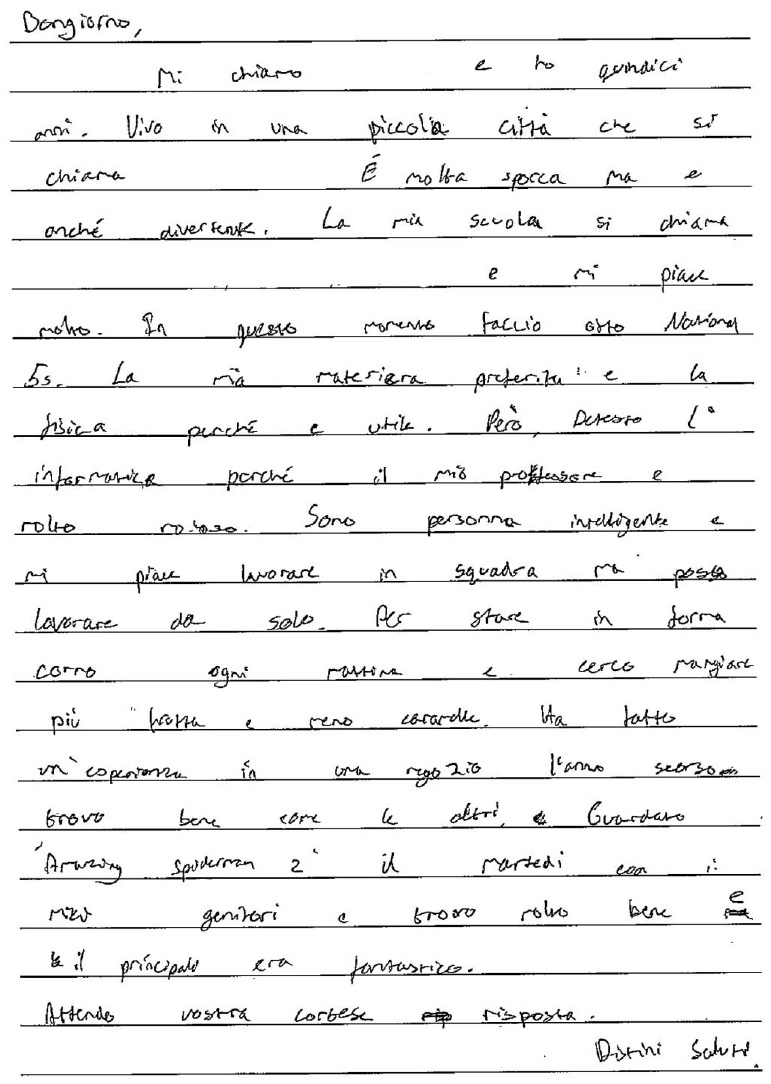 Bongiorno,
Mi chiamo e ho quindici
anni. Vivo in una piccola città che si
chiama È molta sporca ma e
anché divertente. La mia scuola si chiama
e mi piace
molto. In questo momento faccio otto National
5s. La mia materiera preferita e la
fisica perché e utile. Però, Detesto l'
informatica perché il mio professore e
molto noioso. Sono personna intelligente e
mi piace lavorare in squadra ma posso
lavorare da solo. Per stare in forma
corro ogni mattina e cerco mangiare
più frutta e meno caramelle. Ha fatto
un'esperienza in una negozio l'anno scorso
trovo bene come le altri, Guardavo
'Amazing spiderman 2' il martedi con i
miei genitori e trovo molto bene e
il principale era fantastico.
Attendo vostra cortese risposta.
Distini Saluti.